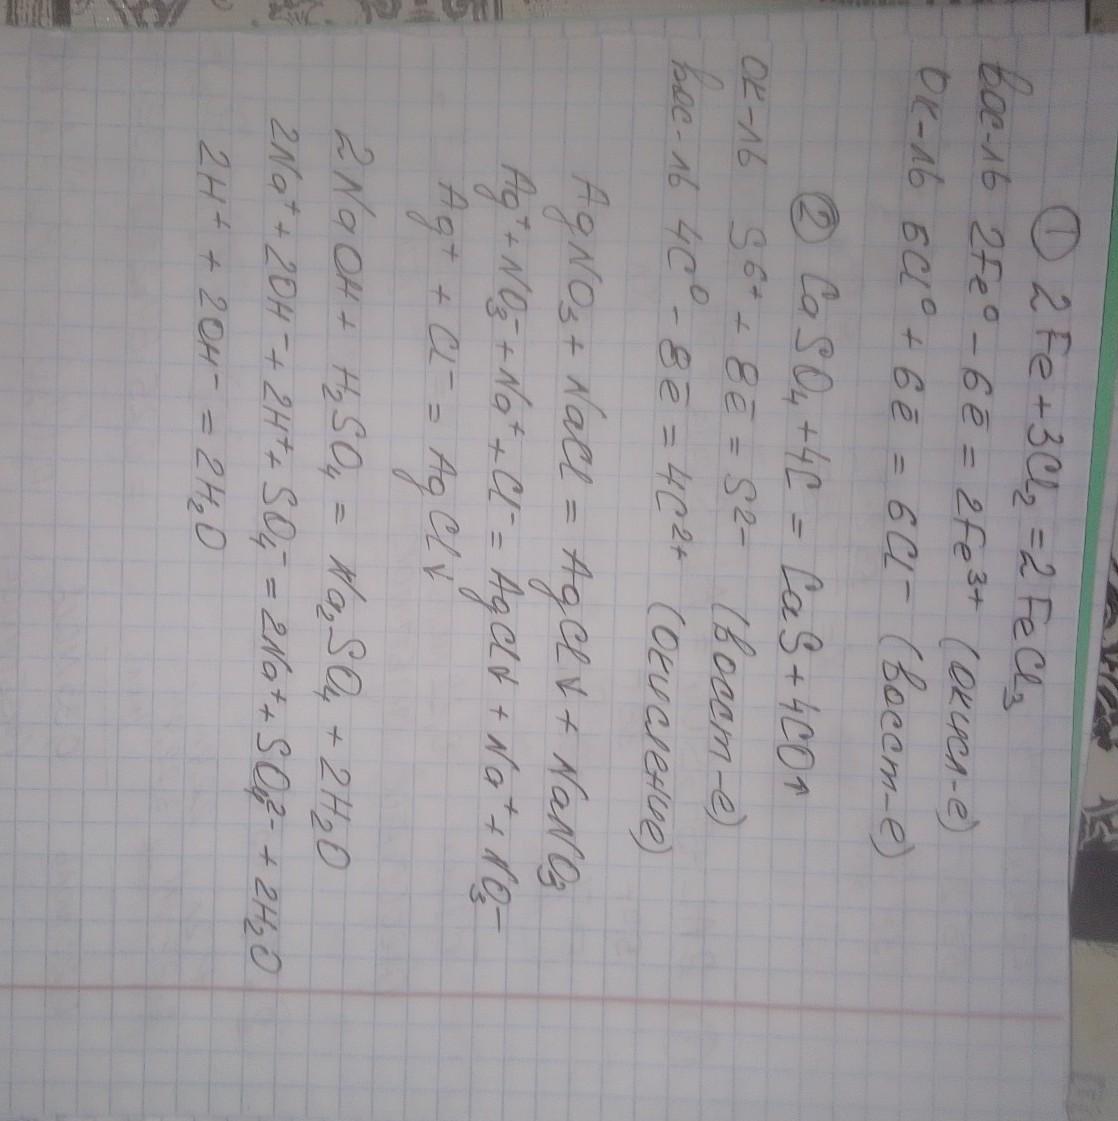 ① 2Fe+3Cl₂=2FeCl₃
вос-ль 2Fe⁰ - 6ē = 2Fe³⁺ (окисл-е)
ок-ль 6Cl⁰ + 6ē = 6Cl⁻ (восст-е)
② CaSO₄+4C = CaS+4CO↑
ок-ль S⁶⁺ + 8ē = S²⁻ (восст-е)
вос-ль 4C⁰ - 8ē = 4C²⁺ (окисление)
AgNO₃ + NaCl = AgCl↓ + NaNO₃
Ag⁺ + NO₃⁻ + Na⁺ + Cl⁻ = AgCl↓ + Na⁺ + NO₃⁻
Ag⁺ + Cl⁻ = AgCl↓
2NaOH + H₂SO₄ = Na₂SO₄ + 2H₂O
2Na⁺ + 2OH⁻ + 2H⁺ + SO₄⁻ = 2Na⁺ + SO₄²⁻ + 2H₂O
2H⁺ + 2OH⁻ = 2H₂O